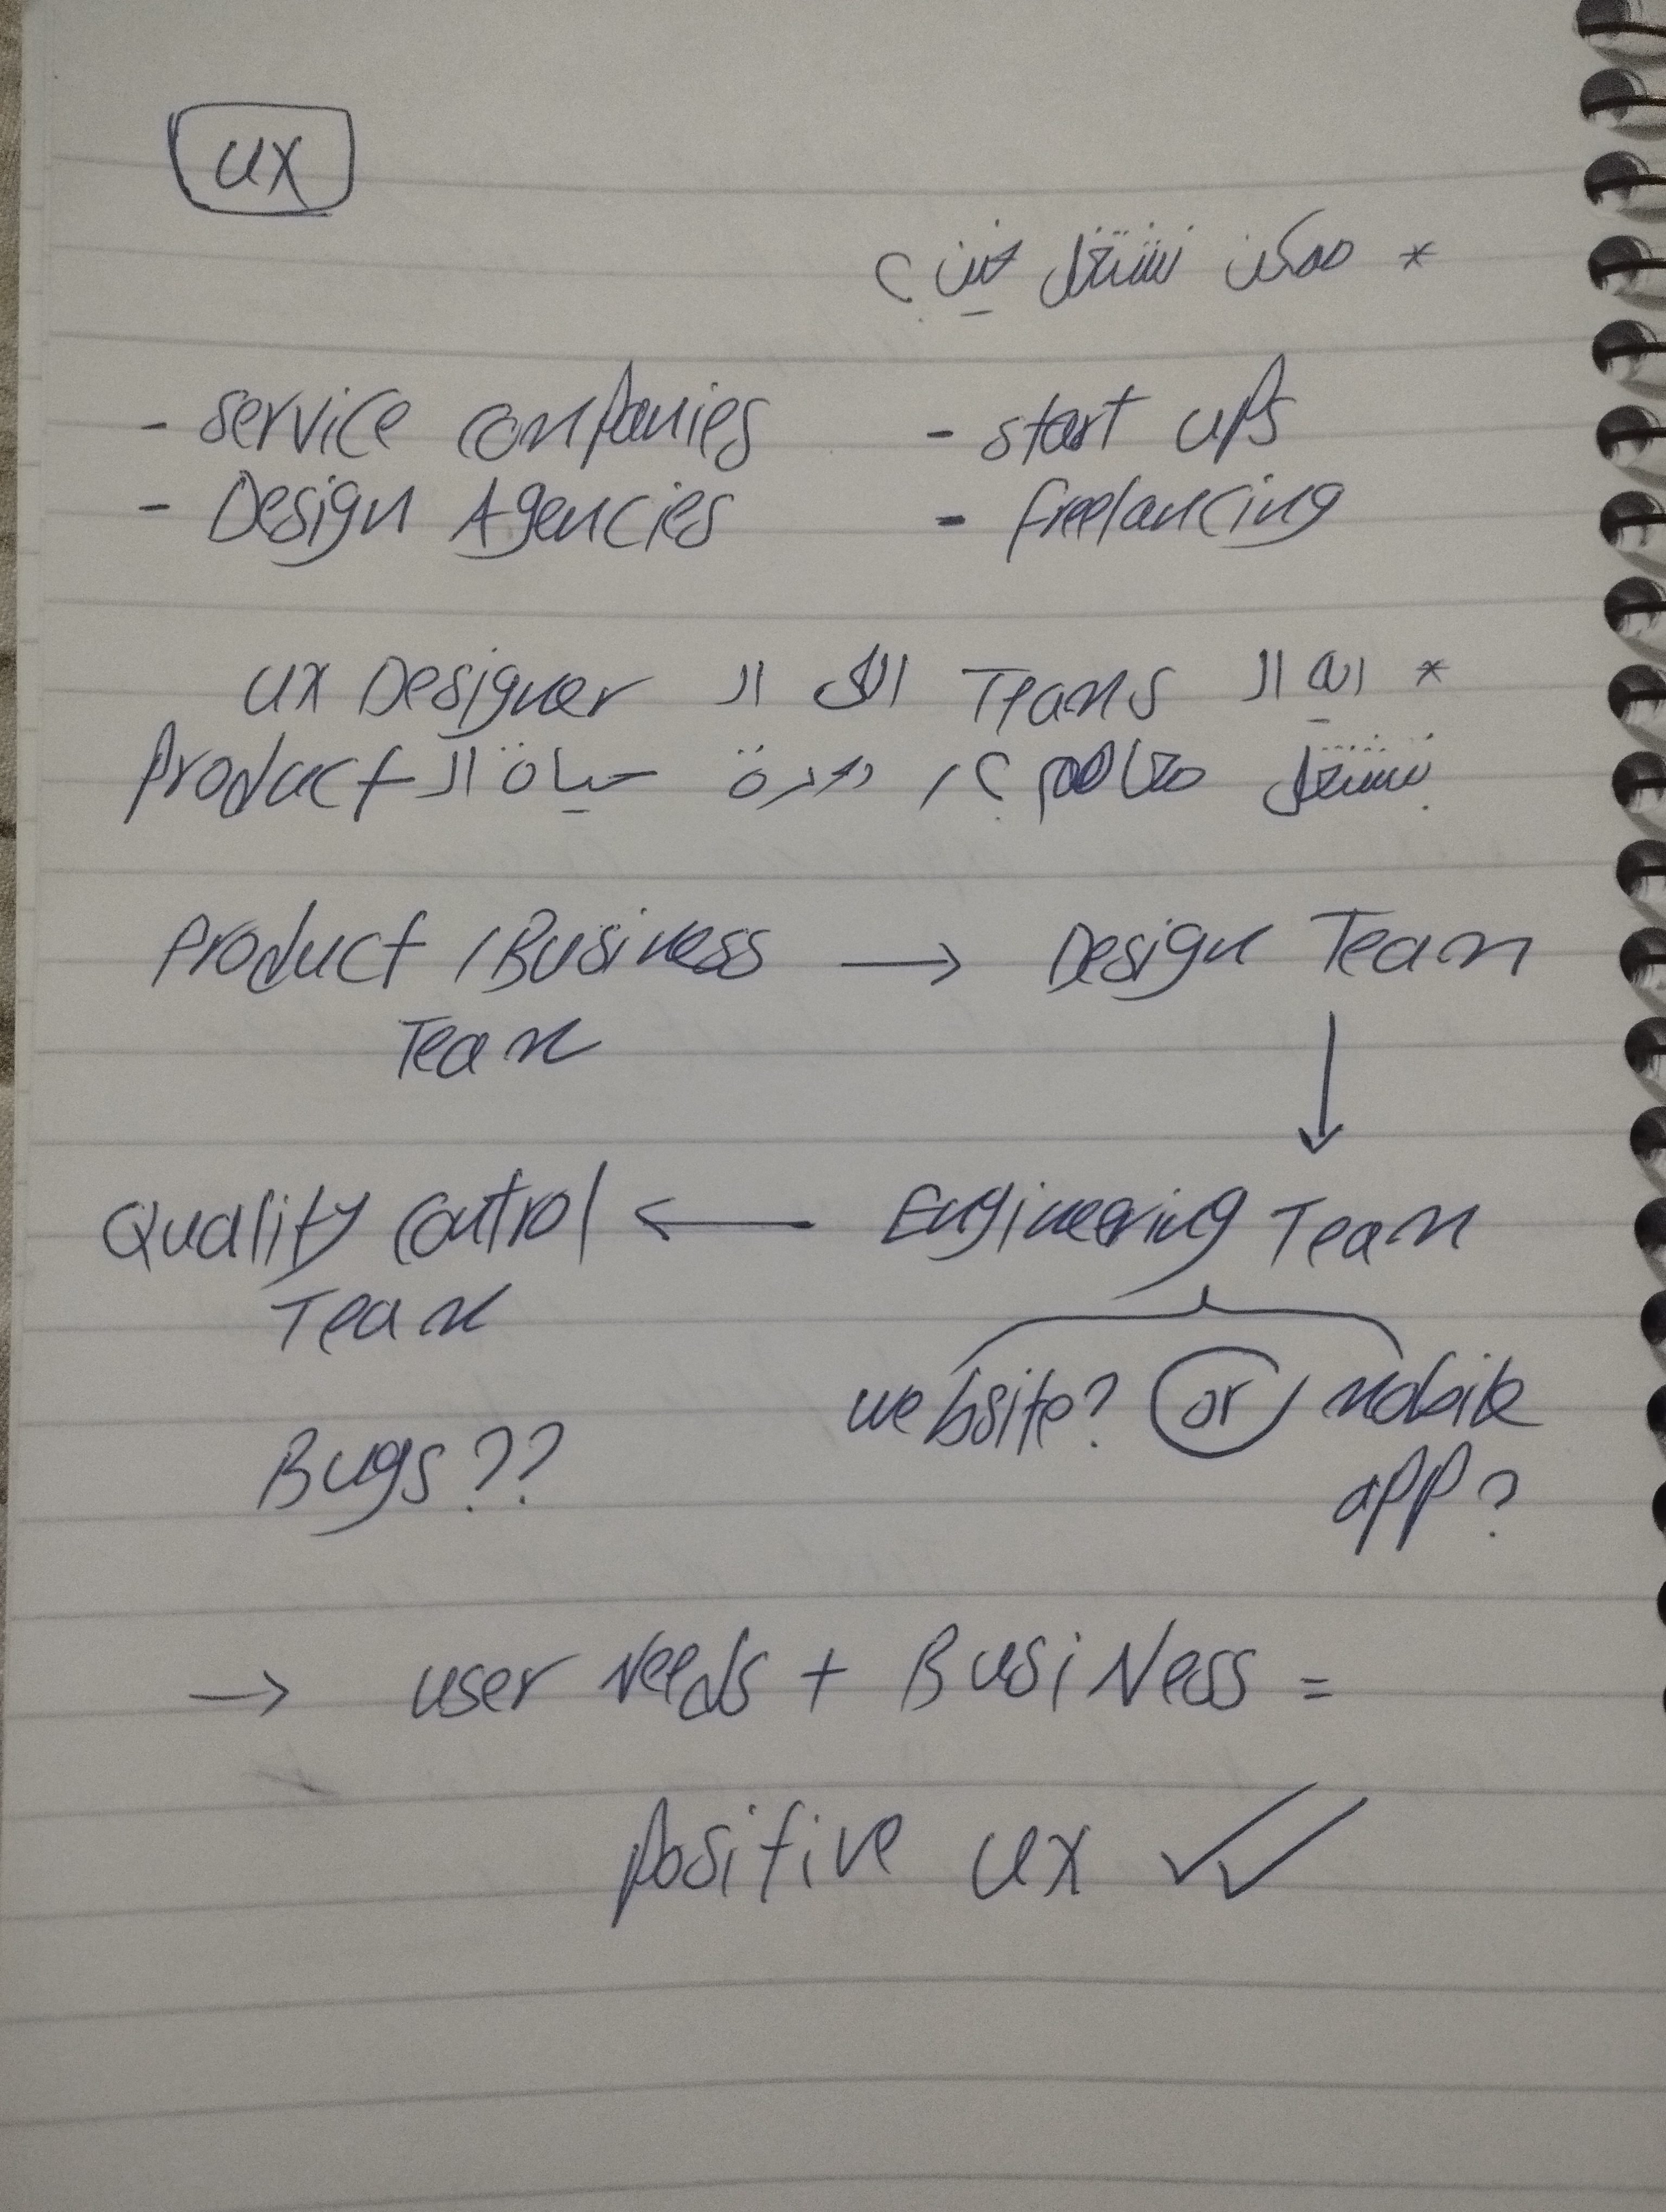 UX
* ممكن نشتغل فين؟
- service companies - start ups
- Design Agencies - freelancing
* ايه ال Teams اللى ال UX Designer
بتشتغل معاهم؟ / دورة حياة ال Product
Product / Business → Design Team
Team
↓
Quality Control ← Engineering Team
Team
website? or / mobile
Bugs?? app?
→ user Needs + BusiNess =
positive UX ✓✓